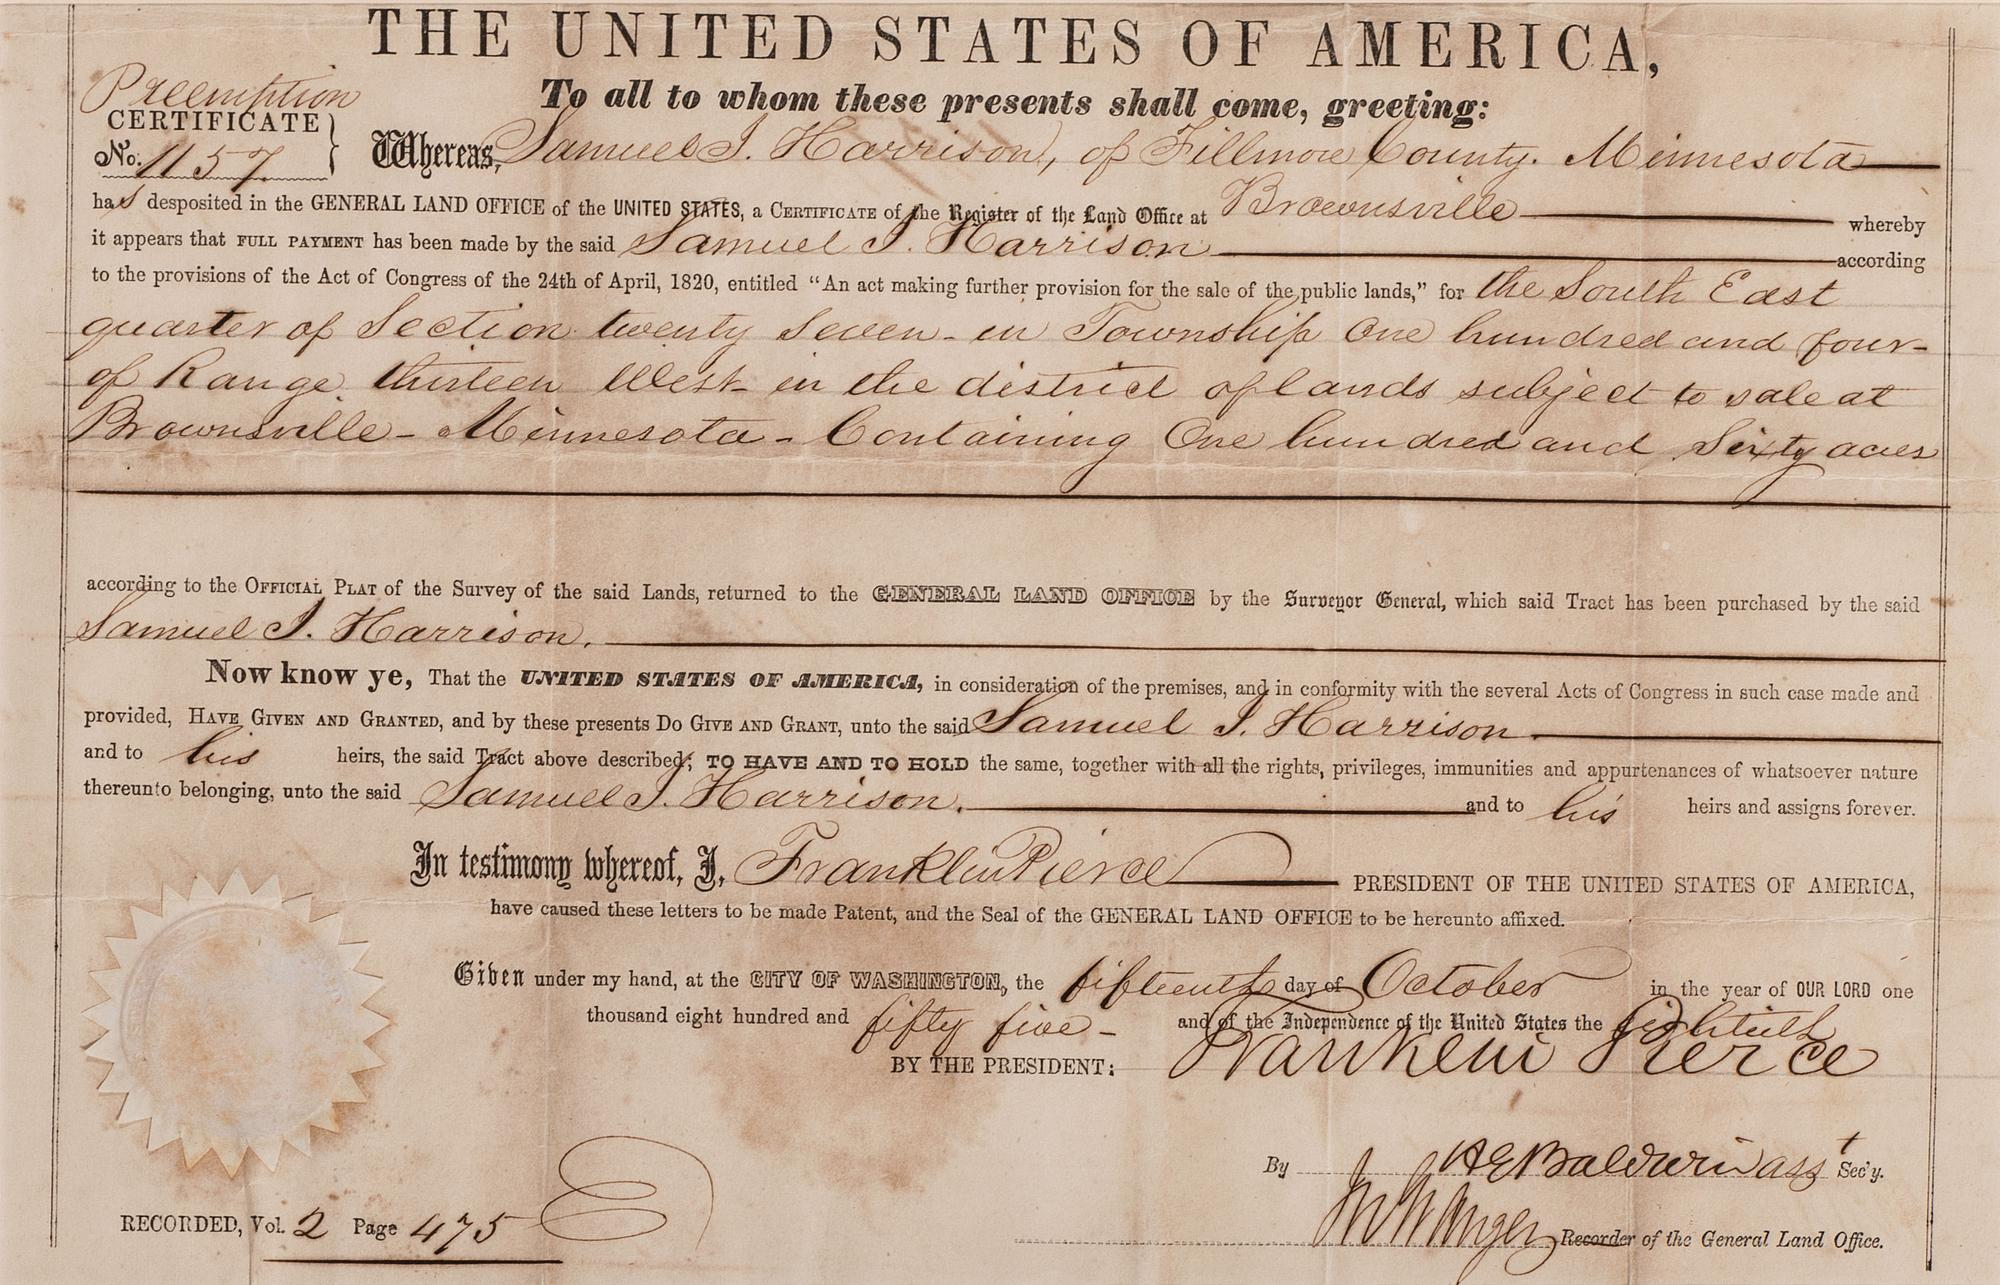 THE UNITED STATES OF AMERICA,
To all to whom these presents shall come, greeting:
Preemption
CERTIFICATE
No. 1157
Whereas, Samuel J. Harrison, of Fillmore County. Minnesota
has desposited in the GENERAL LAND OFFICE of the UNITED STATES, a CERTIFICATE of the Register of the Land Office at Brownsville whereby
it appears that FULL PAYMENT has been made by the said Samuel J. Harrison according
to the provisions of the Act of Congress of the 24th of April, 1820, entitled “An act making further provision for the sale of the public lands,” for the South East
quarter of Section twenty seven - in Township One hundred and four -
of Range thirteen West - in the district of lands subject to sale at
Brownsville - Minnesota - Containing One hundred and Sixty acres
according to the OFFICIAL PLAT of the Survey of the said Lands, returned to the GENERAL LAND OFFICE by the Surveyor General, which said Tract has been purchased by the said
Samuel J. Harrison.
Now know ye, That the UNITED STATES OF AMERICA, in consideration of the premises, and in conformity with the several Acts of Congress in such case made and
provided, HAVE GIVEN AND GRANTED, and by these presents DO GIVE AND GRANT, unto the said Samuel J. Harrison.
and to his heirs, the said Tract above described; TO HAVE AND TO HOLD the same, together with all the rights, privileges, immunities and appurtenances of whatsoever nature
thereunto belonging, unto the said Samuel J. Harrison. and to his heirs and assigns forever.
In testimony whereof, I, Franklin Pierce PRESIDENT OF THE UNITED STATES OF AMERICA,
have caused these letters to be made Patent, and the Seal of the GENERAL LAND OFFICE to be hereunto affixed.
Given under my hand, at the CITY OF WASHINGTON, the fifteenth day of October in the year of OUR LORD one
thousand eight hundred and fifty five - and of the Independence of the United States the eightieth
BY THE PRESIDENT: Franklin Pierce
By H E Baldwin asst Sec'y.
RECORDED, Vol. 2 Page 475
Recorder of the General Land Office.